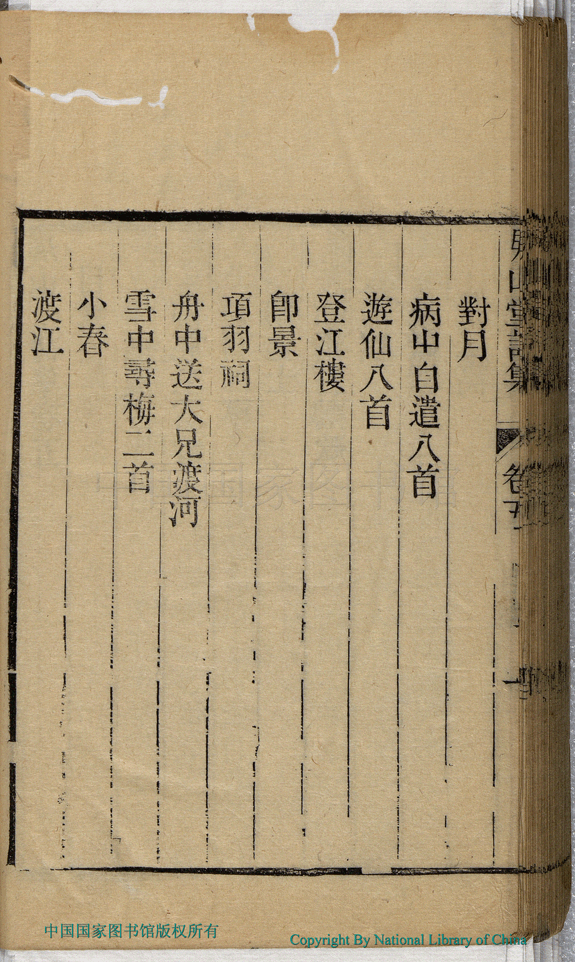 山堂詩集
卷五
對月
病中自遣八首
遊仙八首
登江樓
卽景
項羽祠
舟中送大兄渡河
雪中尋梅二首
小春
渡江
中国国家图书馆版权所有
Copyright By National Library of China